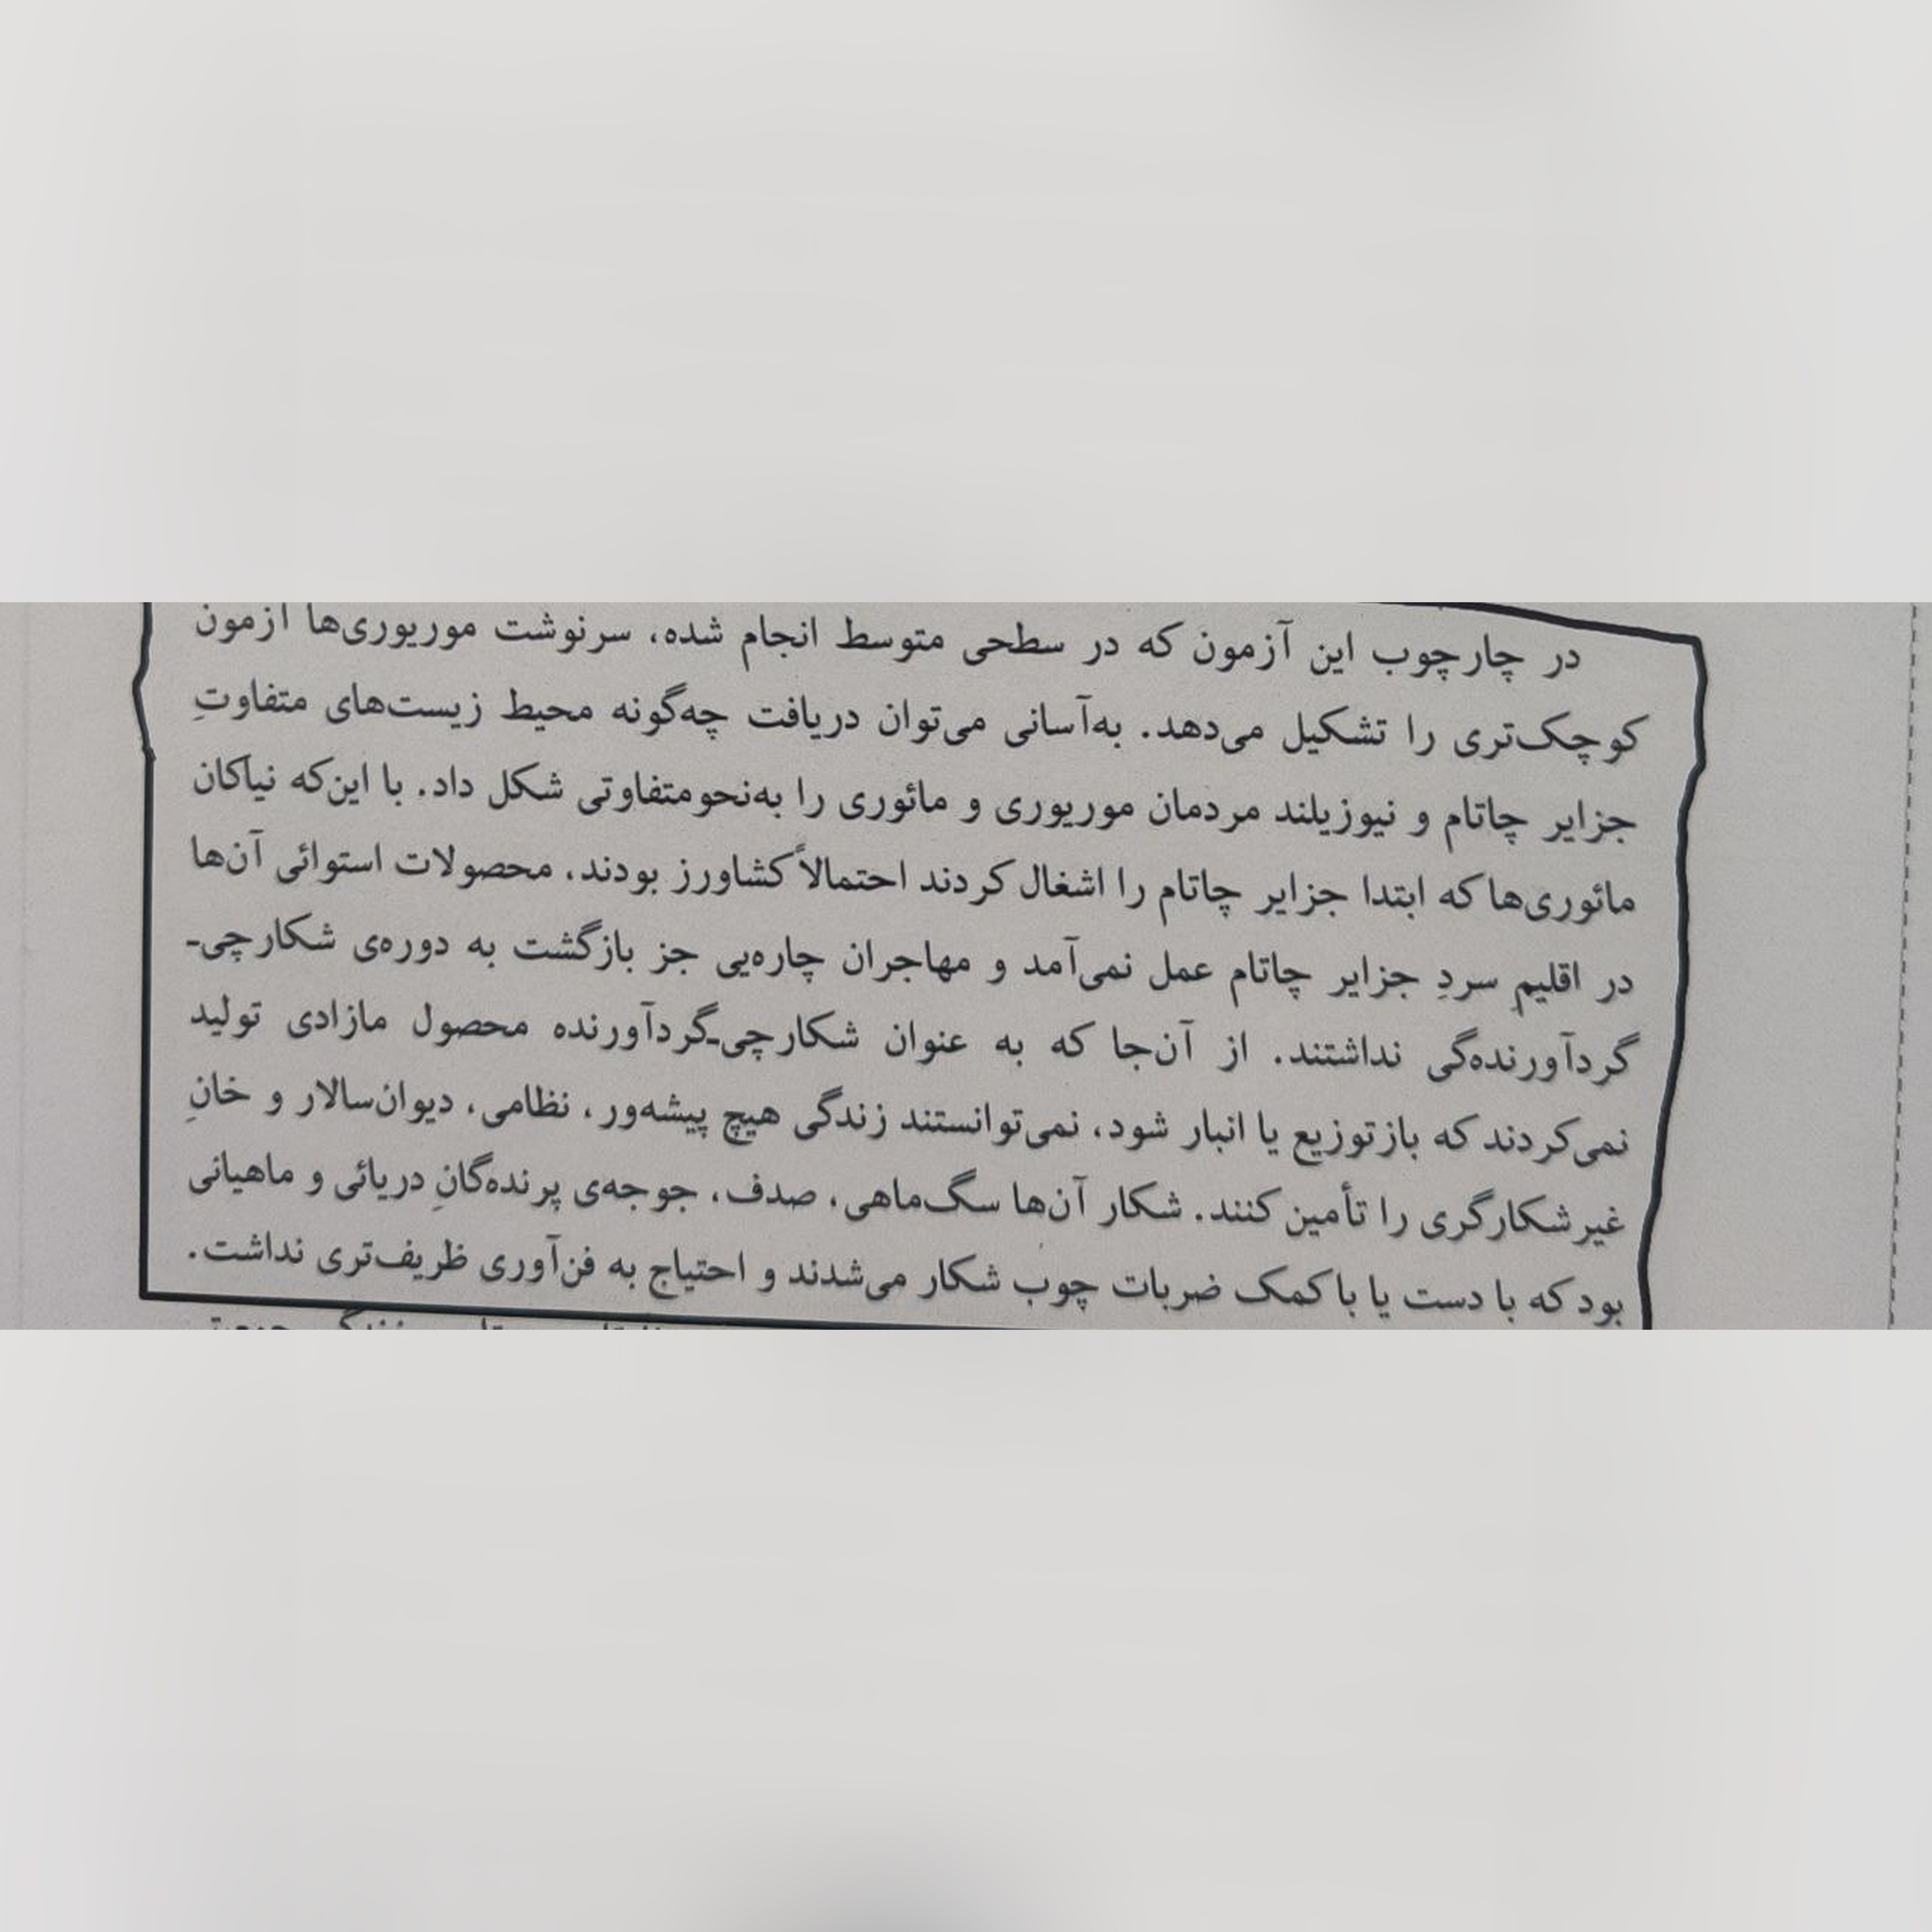 در چارچوب این آزمون که در سطحی متوسط انجام شده، سرنوشت موریوری‌ها آزمون
کوچک‌تری را تشکیل می‌دهد. به‌آسانی می‌توان دریافت چه‌گونه محیط زیست‌های متفاوتِ
جزایر چاتام و نیوزیلند مردمان موریوری و مائوری را به‌نحو متفاوتی شکل داد. با این‌که نیاکان
مائوری‌ها که ابتدا جزایر چاتام را اشغال کردند احتمالاً کشاورز بودند، محصولات استوائی آن‌ها
در اقلیمِ سردِ جزایر چاتام عمل نمی‌آمد و مهاجران چاره‌یی جز بازگشت به دوره‌ی شکارچی-
گردآورنده‌گی نداشتند. از آن‌جا که به عنوان شکارچی-گردآورنده محصول مازادی تولید
نمی‌کردند که بازتوزیع یا انبار شود، نمی‌توانستند زندگی هیچ پیشه‌ور، نظامی، دیوان‌سالار و خانِ
غیرشکارگری را تأمین کنند. شکار آن‌ها سگ‌ماهی، صدف، جوجه‌ی پرنده‌گانِ دریائی و ماهیانی
بود که با دست یا با کمک ضربات چوب شکار می‌شدند و احتیاج به فن‌آوری ظریف‌تری نداشت.